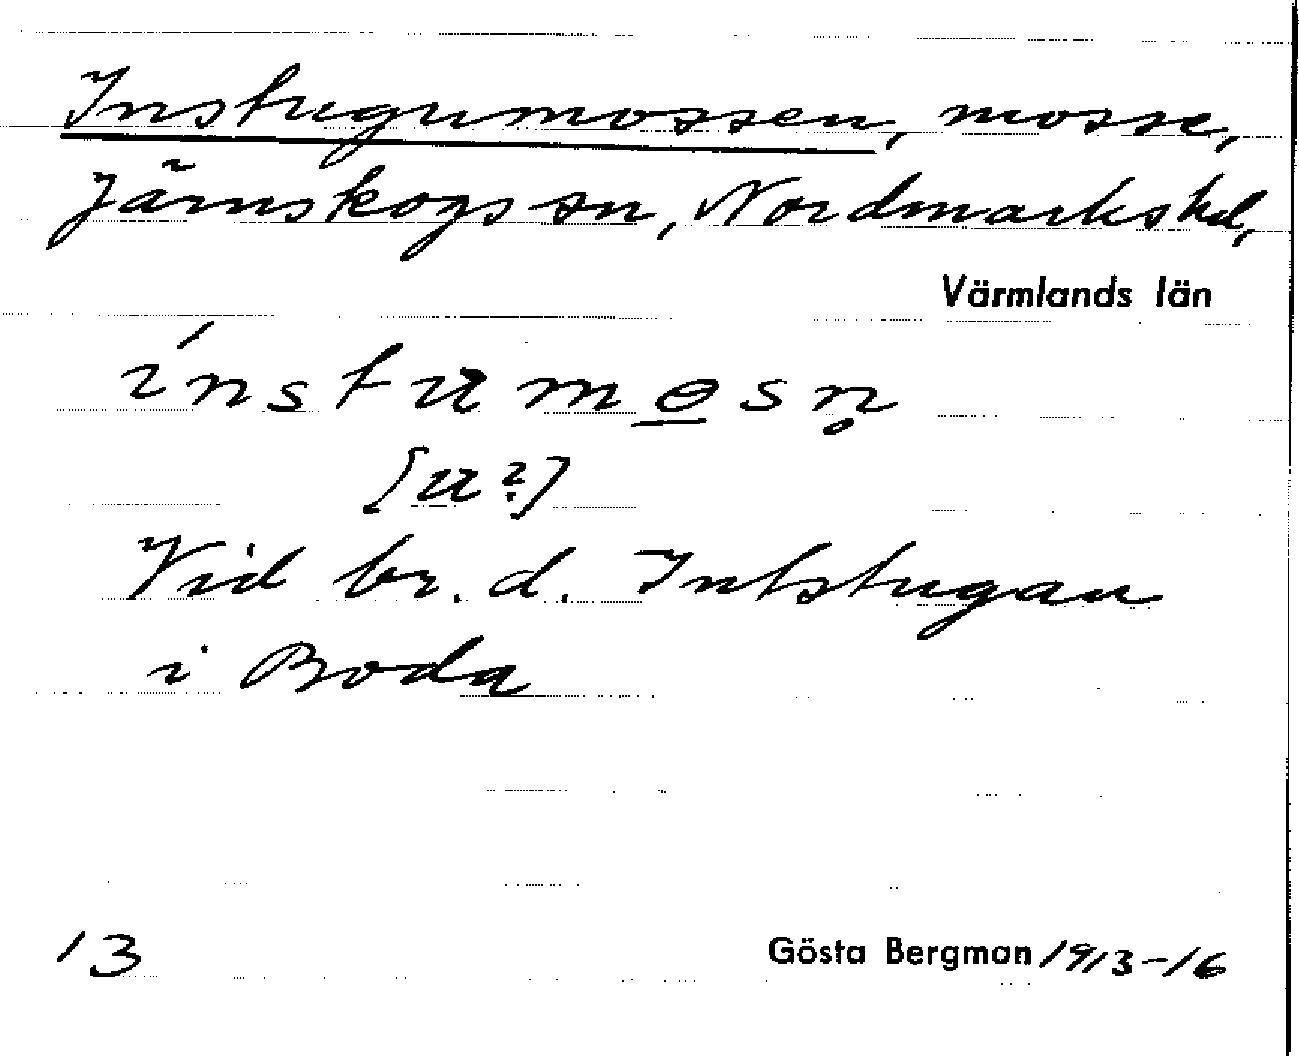 Instugumossen, mosse,
Järnskogs sn, Nordmarks hd,
Värmlands län
ínstumo̲sn̥
[u?]
Vid br. d. Intstugan
i Boda
13 Gösta Bergman 1913-16